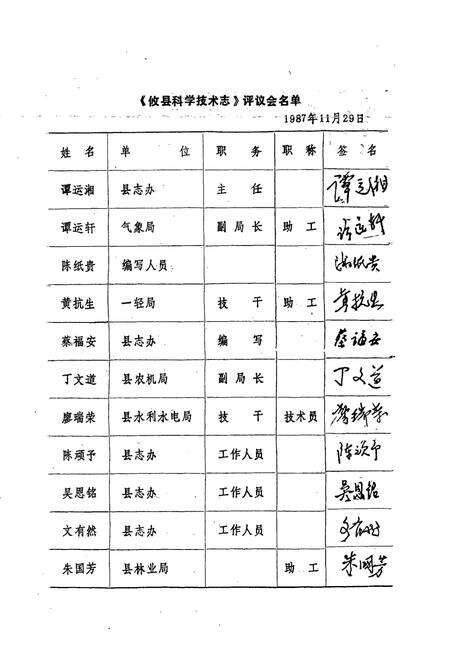 《攸县科学技术志》评议会名单
1987年11月29日
姓名 单位 职务 职称 签名
谭运湘 县志办 主任 谭运湘
谭运轩 气象局 副局长 助工 谭运轩
陈纸贵 编写人员 陈纸贵
黄抗生 一轻局 技干 助工 黄抗生
蔡福安 县志办 编写 蔡福安
丁文道 县农机局 副局长 丁文道
廖瑞荣 县水利水电局 技干 技术员 廖瑞荣
陈顽予 县志办 工作人员
吴恩铭 县志办 工作人员 吴恩铭
文有然 县志办 工作人员 文有然
朱国芳 县林业局 助工 朱国芳